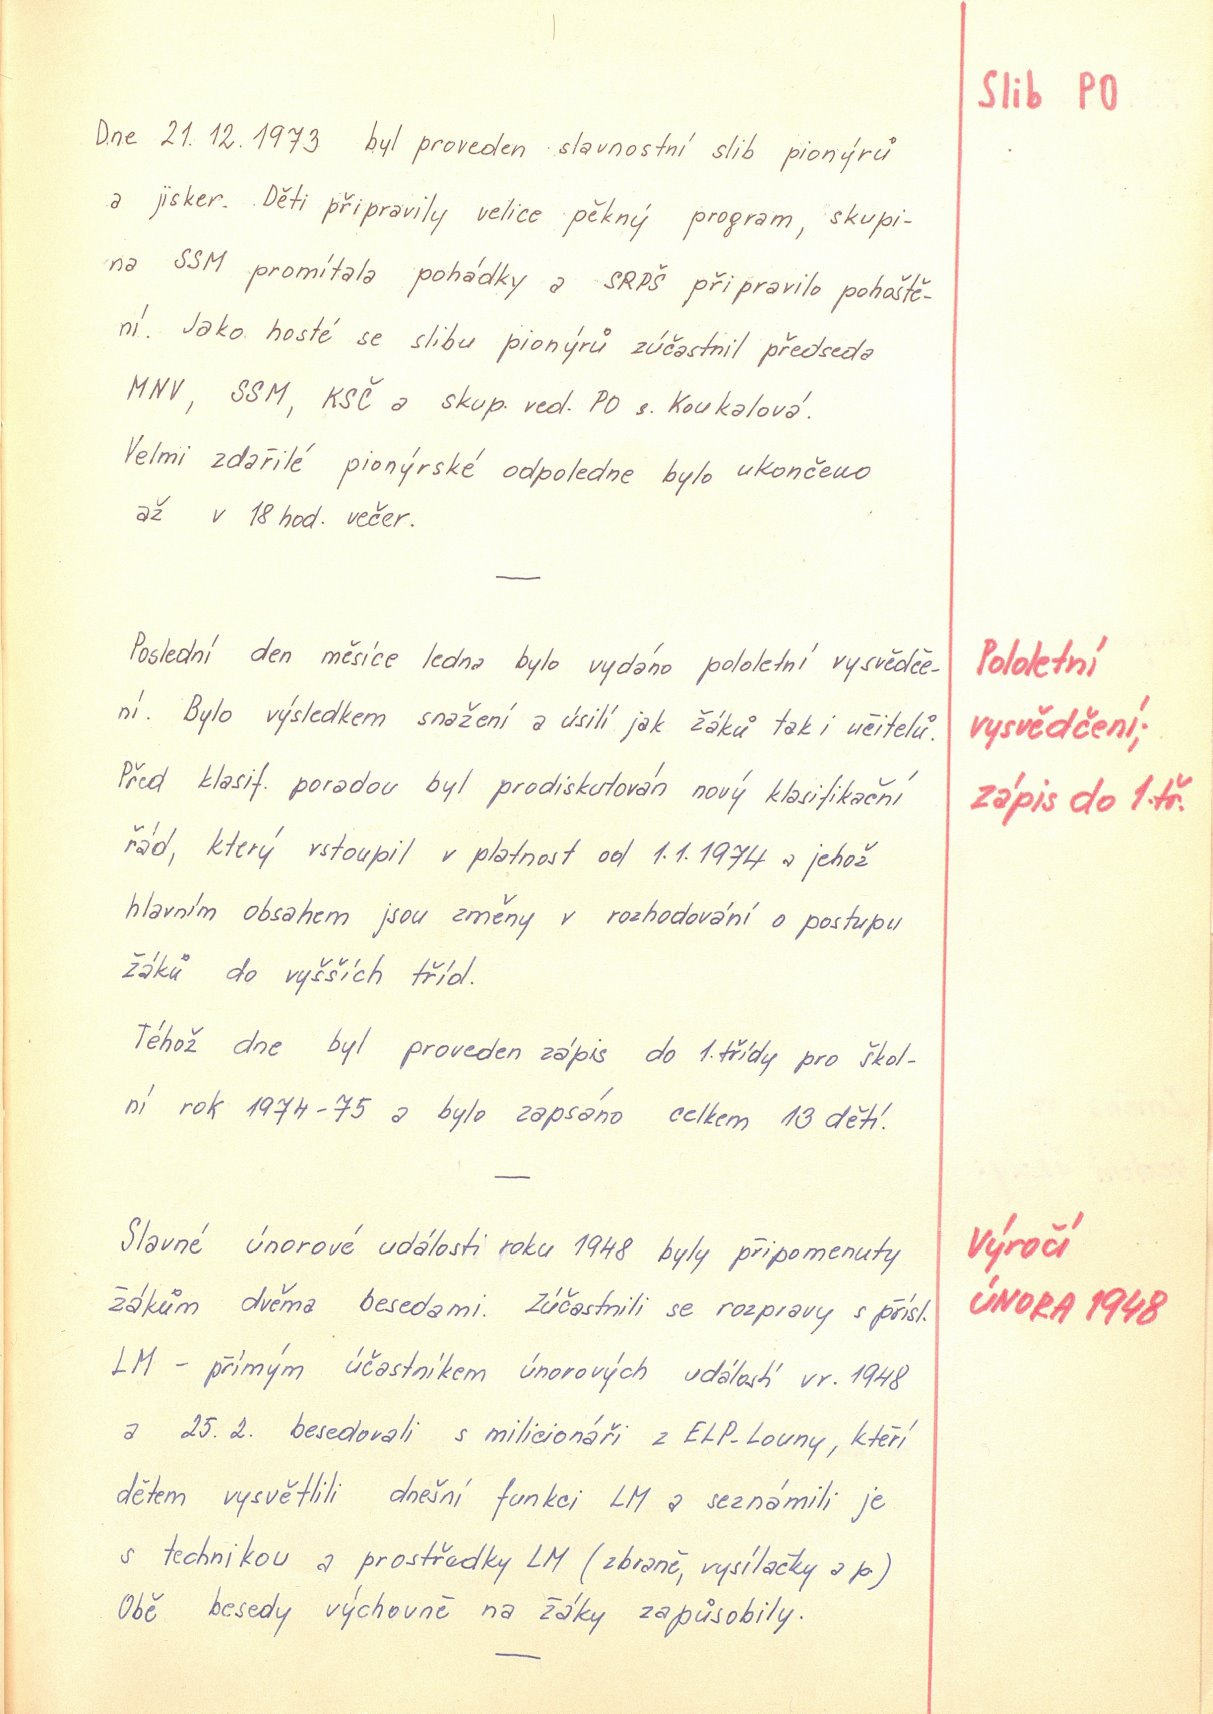 Slib PO
Dne 21. 12. 1973 byl proveden slavnostní slib pionýrů
a jisker. Děti připravily velice pěkný program, skupi-
na SSM promítala pohádky a SRPŠ připravilo pohoště-
ní. Jako hosté se slibu pionýrů zúčastnil předseda
MNV, SSM, KSČ a skup. ved. PO s. Koukalová.
Velmi zdařilé pionýrské odpoledne bylo ukončeno
až v 18 hod. večer.
Pololetní
vysvědčení;
zápis do 1. tř.
Poslední den měsíce ledna bylo vydáno pololetní vysvědče-
ní. Bylo výsledkem snažení a úsilí jak žáků tak i učitelů.
Před klasif. poradou byl prodiskutován nový klasifikační
řád, který vstoupil v platnost od 1. 1. 1974 a jehož
hlavním obsahem jsou změny v rozhodování o postupu
žáků do vyšších tříd.
Téhož dne byl proveden zápis do 1. třídy pro škol-
ní rok 1974-75 a bylo zapsáno celkem 13 dětí.
Výročí
ÚNORA 1948
Slavné únorové události roku 1948 byly připomenuty
žákům dvěma besedami. Zúčastnili se rozpravy s přísl.
LM - přímým účastníkem únorových událostí v r. 1948
a 25. 2. besedovali s milicionáři z ELP-Louny, kteří
dětem vysvětlili dnešní funkci LM a seznámili je
s technikou a prostředky LM (zbraně, vysílačky a p.)
Obě besedy výchovně na žáky zapůsobily.